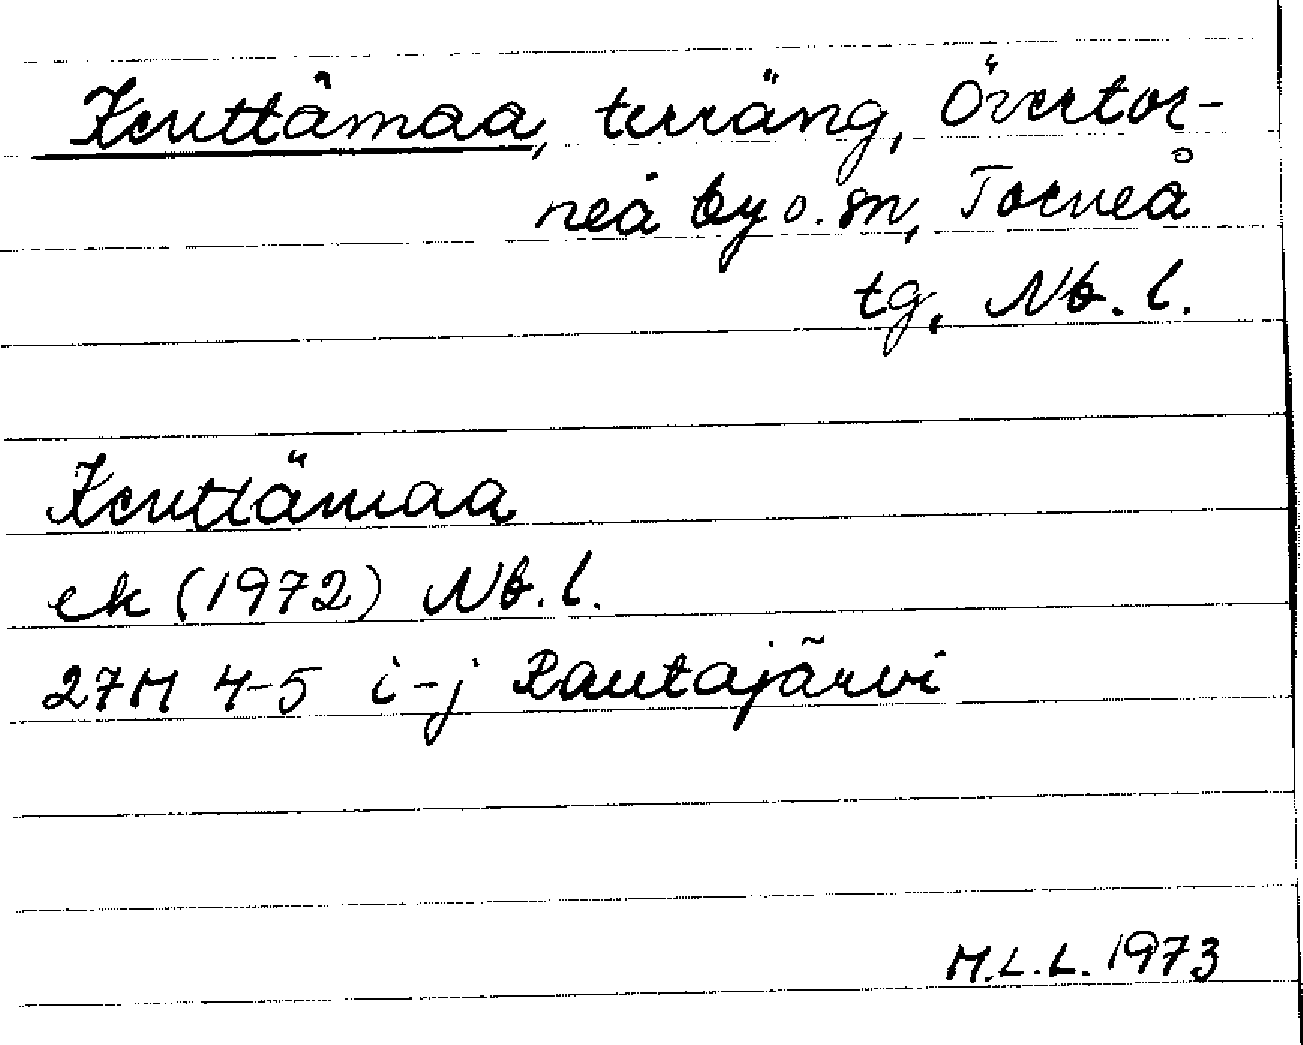 Kenttämaa, terräng, Övertor-
neå by o. sn, Torneå
tg, Nb. l.
Kenttämaa
ek (1972) Nb. l.
27M 4-5 i-j Rautajärvi
M.L.L. 1973